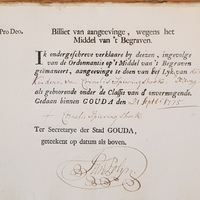 Pro Deo.
Billiet van aangeevinge, wegens het
Middel van 't Begraven.
IK ondergeschreve verklaare by deezen, ingevolge
van de Ordonnantie op 't Middel van 't Begraven
geëmaneert, aangeevinge te doen van het Lyk, van
als gehoorende onder de Classis van d'onvermogende.
Gedaan binnen GOUDA, den 21 1775
Ter Secretarye der Stad GOUDA,
getekent op datum als boven.